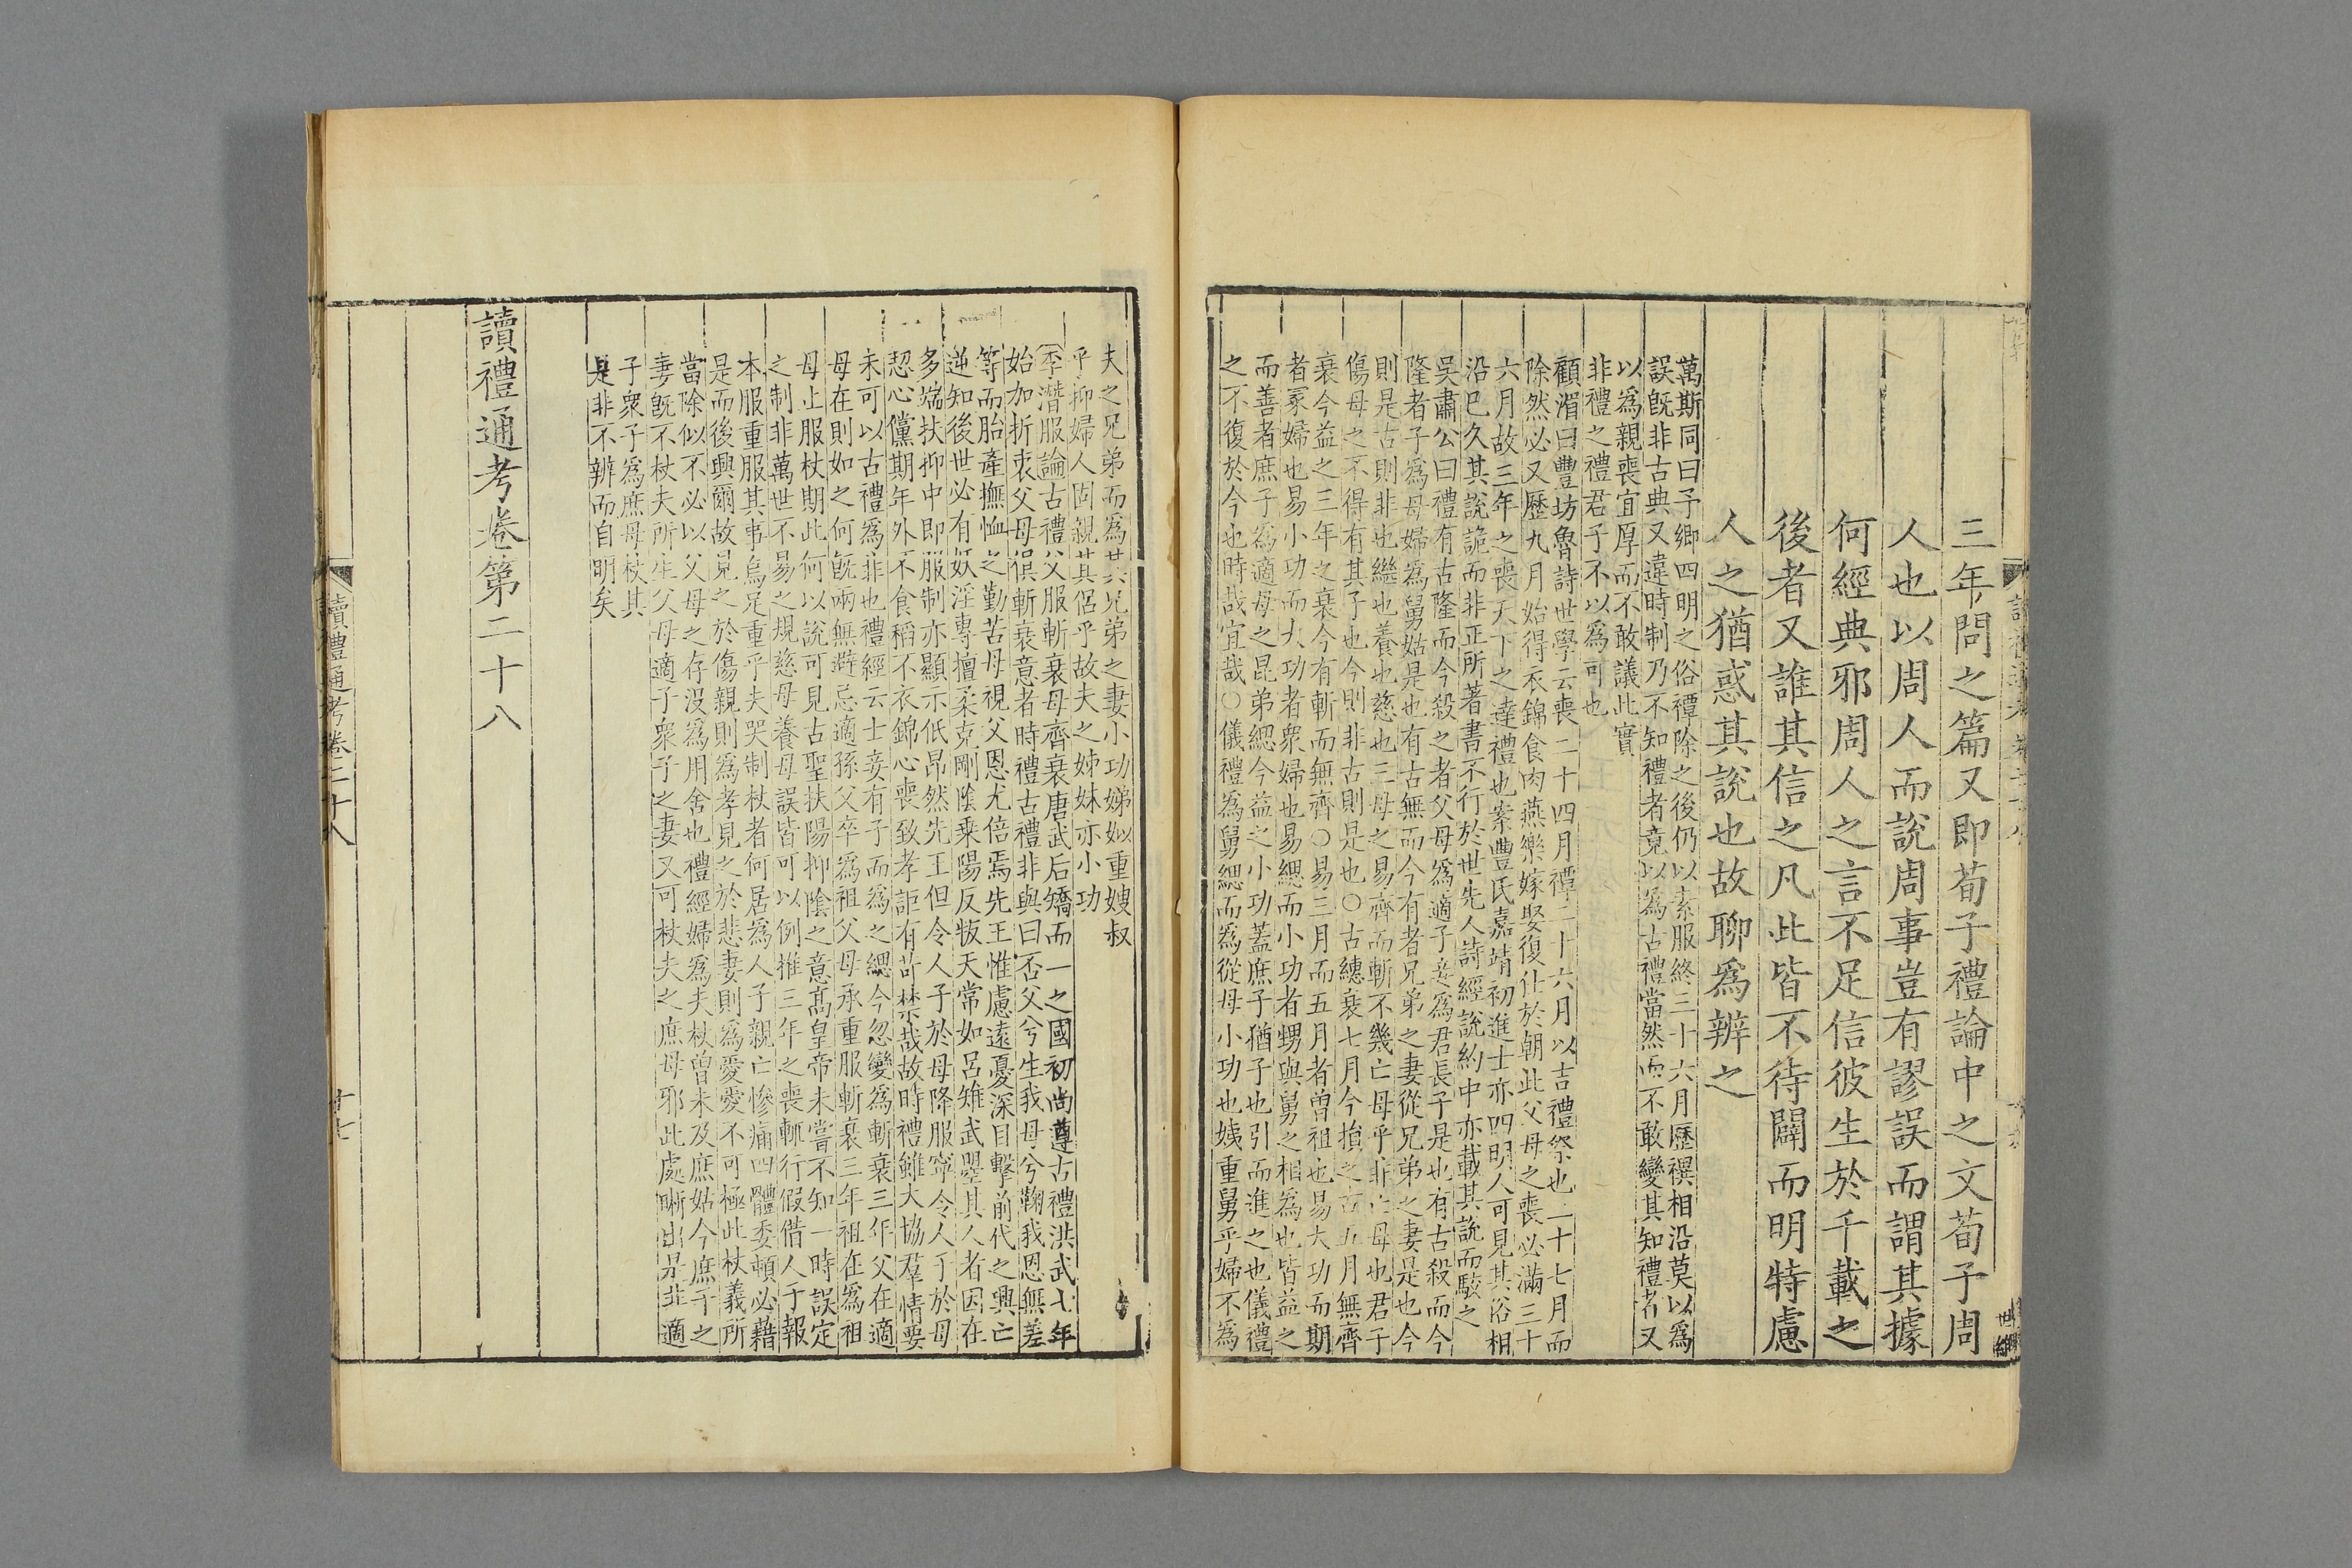 三年問之篇又即荀子禮論中之文荀子周
人也以周人而說周事豈有謬誤而謂其據
何經典邪周人之言不足信彼生於千載之
後者又誰其信之凡此皆不待闢而明特慮
人之猶惑其說也故聊爲辨之
萬斯同曰予鄉四明之俗禫除之後仍以素服終三十六月歷禩相沿莫以爲
誤旣非古典又違時制乃不知禮者竟以爲古禮當然而不敢變其知禮者又
以爲親喪宜厚而不敢議此實
非禮之禮君子不以爲可也
顧湄曰豐坊魯詩世學云喪二十四月禫二十六月以吉禮祭也二十七月而
除然必又歷九月始得衣錦食肉燕樂嫁娶復仕於朝此父母之喪必滿三十
六月故三年之喪天下之達禮也案豐氏嘉靖初進士亦四明人可見其俗相
沿已久其說詭而非正所著書不行於世先人詩經說約中亦載其說而駮之
吳肅公曰禮有古隆而今殺之者父母爲適子妾爲君長子是也有古殺而今
隆者子爲母婦爲舅姑是也有古無而今有者兄弟之妻從兄弟之妻是也今
則是古則非也繼也養也慈也三母之易齊而斬不幾亡母乎非亡母也君子
傷母之不得有其子也今則非古則是也○古繐衰七月今損之古五月無齊
衰今益之三年之衰今有斬而無齊○易三月而五月者曾祖也易大功而期
者冢婦也易小功而大功者衆婦也易緦而小功者甥與舅之相爲也皆益之
而善者庶子爲適母之昆弟緦今益之小功蓋庶子猶子也引而進之也儀禮
之不復於今也時哉宜哉○儀禮爲舅緦而爲從母小功也姨重舅乎婦不爲
夫之兄弟而爲其兄弟之妻小功娣姒重嫂叔
乎抑婦人固親其侶乎故夫之姊妹亦小功
季濳服論古禮父服斬衰母齊衰唐武后矯而一之國初尚遵古禮洪武七年
始加折衷父母俱斬衰意者時禮古禮非與曰否父兮生我母兮鞠我恩無差
等而胎產撫恤之勤苦母視父恩尤倍焉先王惟慮遠憂深目擊前代之興亡
逆知後世必有妖淫專擅柔克剛陰乗陽反皈天常如呂雉武曌其人者因在
多端扶抑中即服制亦顯示低昂然先王但令人子於母降服寧令人子於母
恝心儻期年外不食稻不衣錦心喪致孝詎有苛禁哉故時禮雖大協羣情要
未可以古禮爲非也禮經云士妾有子而爲之緦今忽變爲斬衰三年父在適
母在則如之何旣兩無避忌適孫父卒爲祖父母承重服斬衰三年祖在爲祖
母止服杖期此何以說可見古聖扶陽抑陰之意髙皇帝未嘗不知一時誤定
之制非萬世不易之規慈母養母誤皆可以例推三年之喪輒行假借人于報
本服重服其事烏足重乎夫哭制杖者何居爲人子親亡慘痛四體委頓必藉
是而後興爾故見之於傷親則爲孝見之於悲妻則爲愛愛不可極此杖義所
當除似不必以父母之存沒爲用舍也禮經婦爲夫杖曾未及庶姑今庶子之
妻旣不杖夫所生父母適子衆子之妻又可杖夫之庶母邪此處晰出是非適
子衆子爲庶母杖其
是非不辨而自明矣
讀禮通考卷第二十八
讀禮通考卷二十八
十七